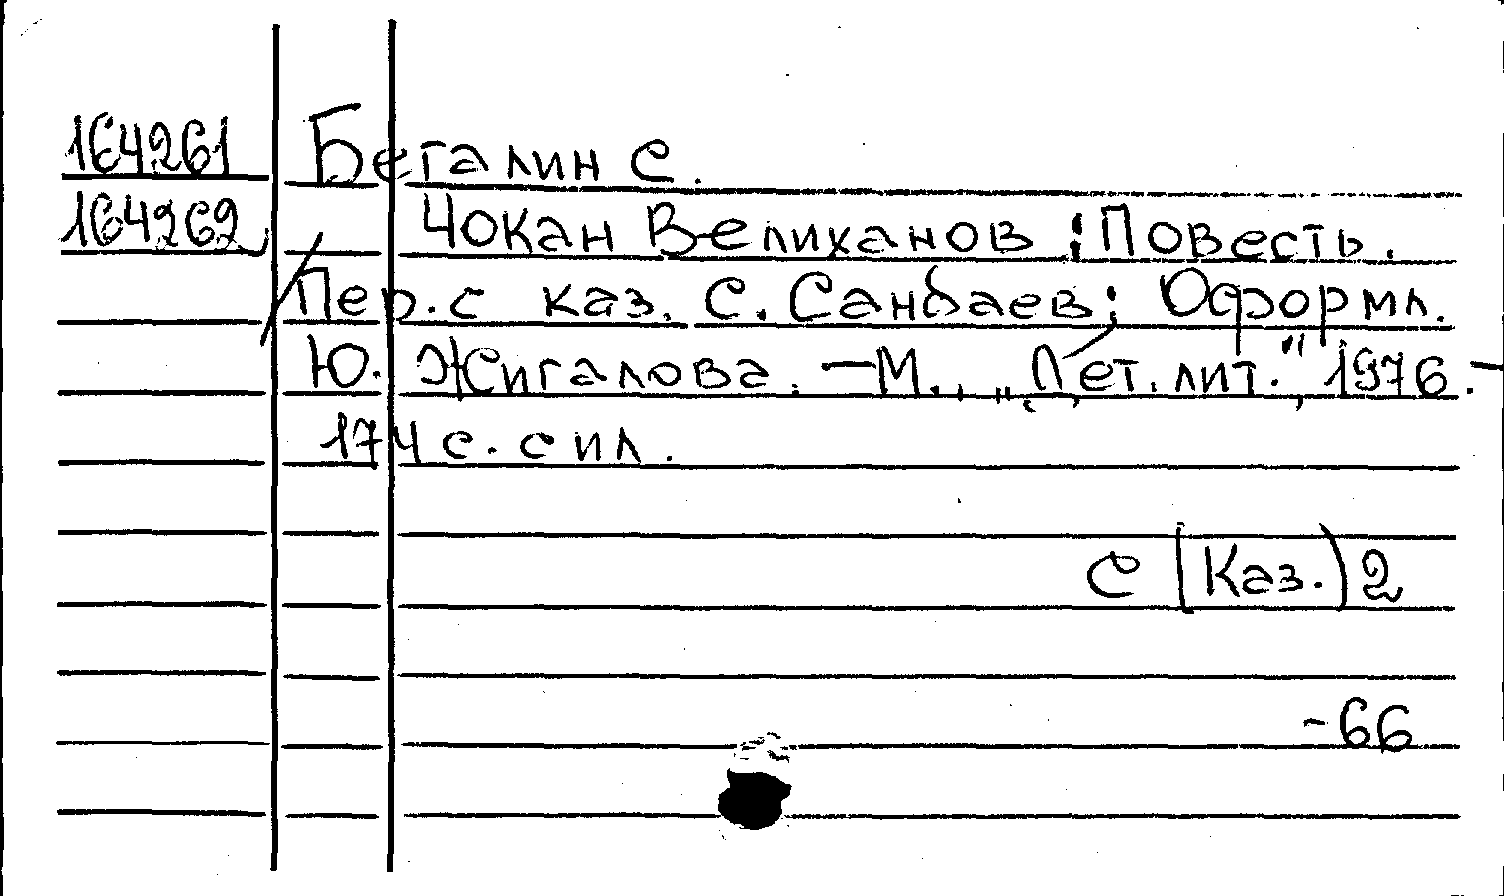 164261 Бегалин С.
164262 Чокан Велиханов : Повесть.
/ Пер. с каз. С. Санбаев; Оформл.
Ю. Жигалова. – М., „Дет. лит.", 1976. –
174 с. с ил.
С (Каз.) 2
- 66